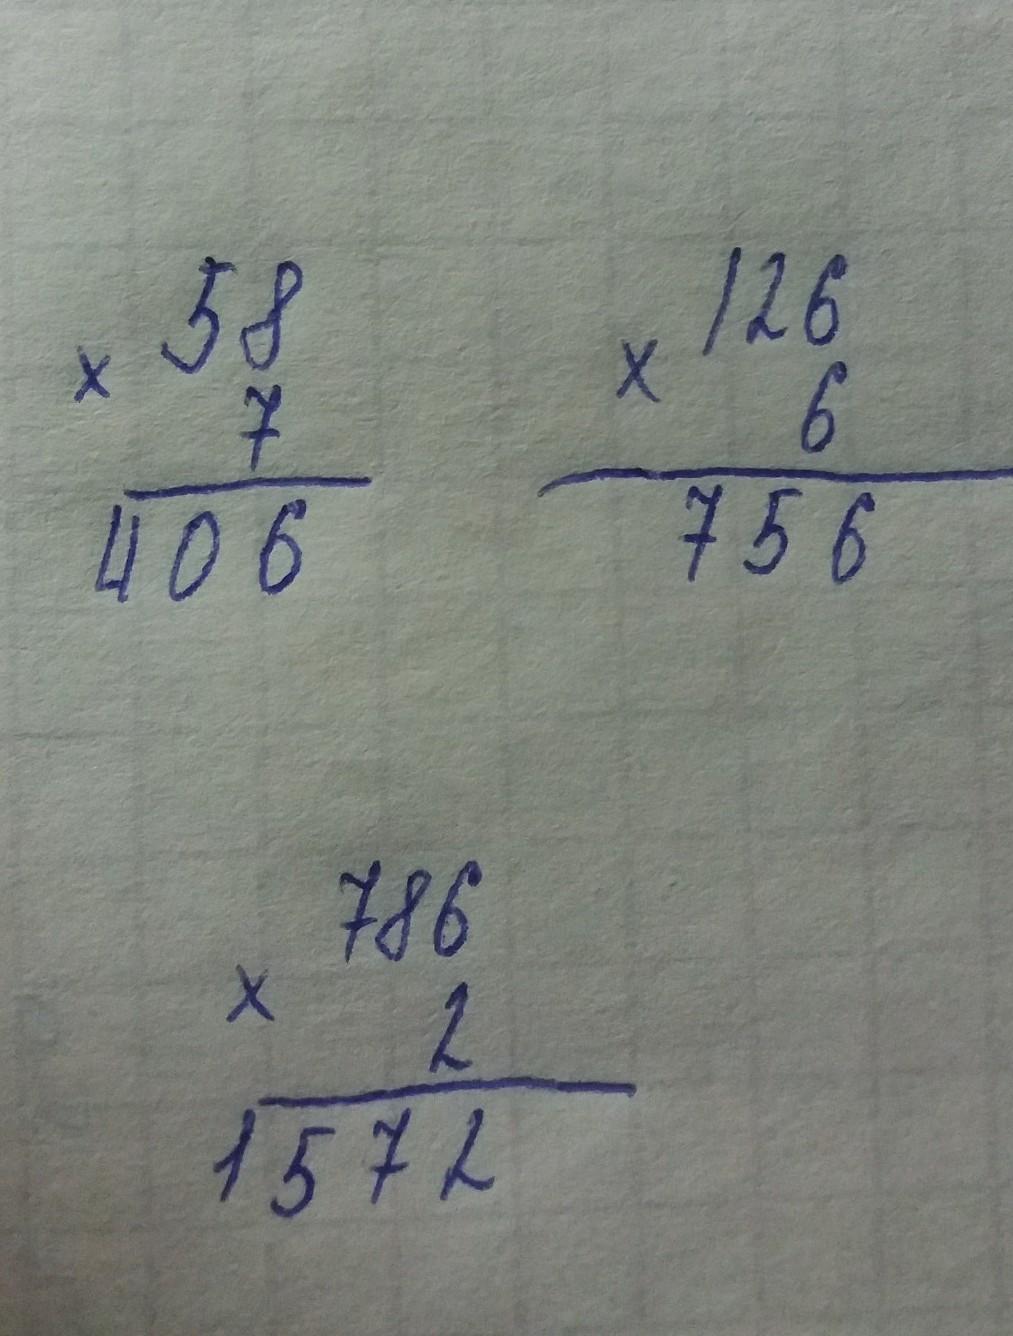 58
× 7
406
126
× 6
756
786
× 2
1572